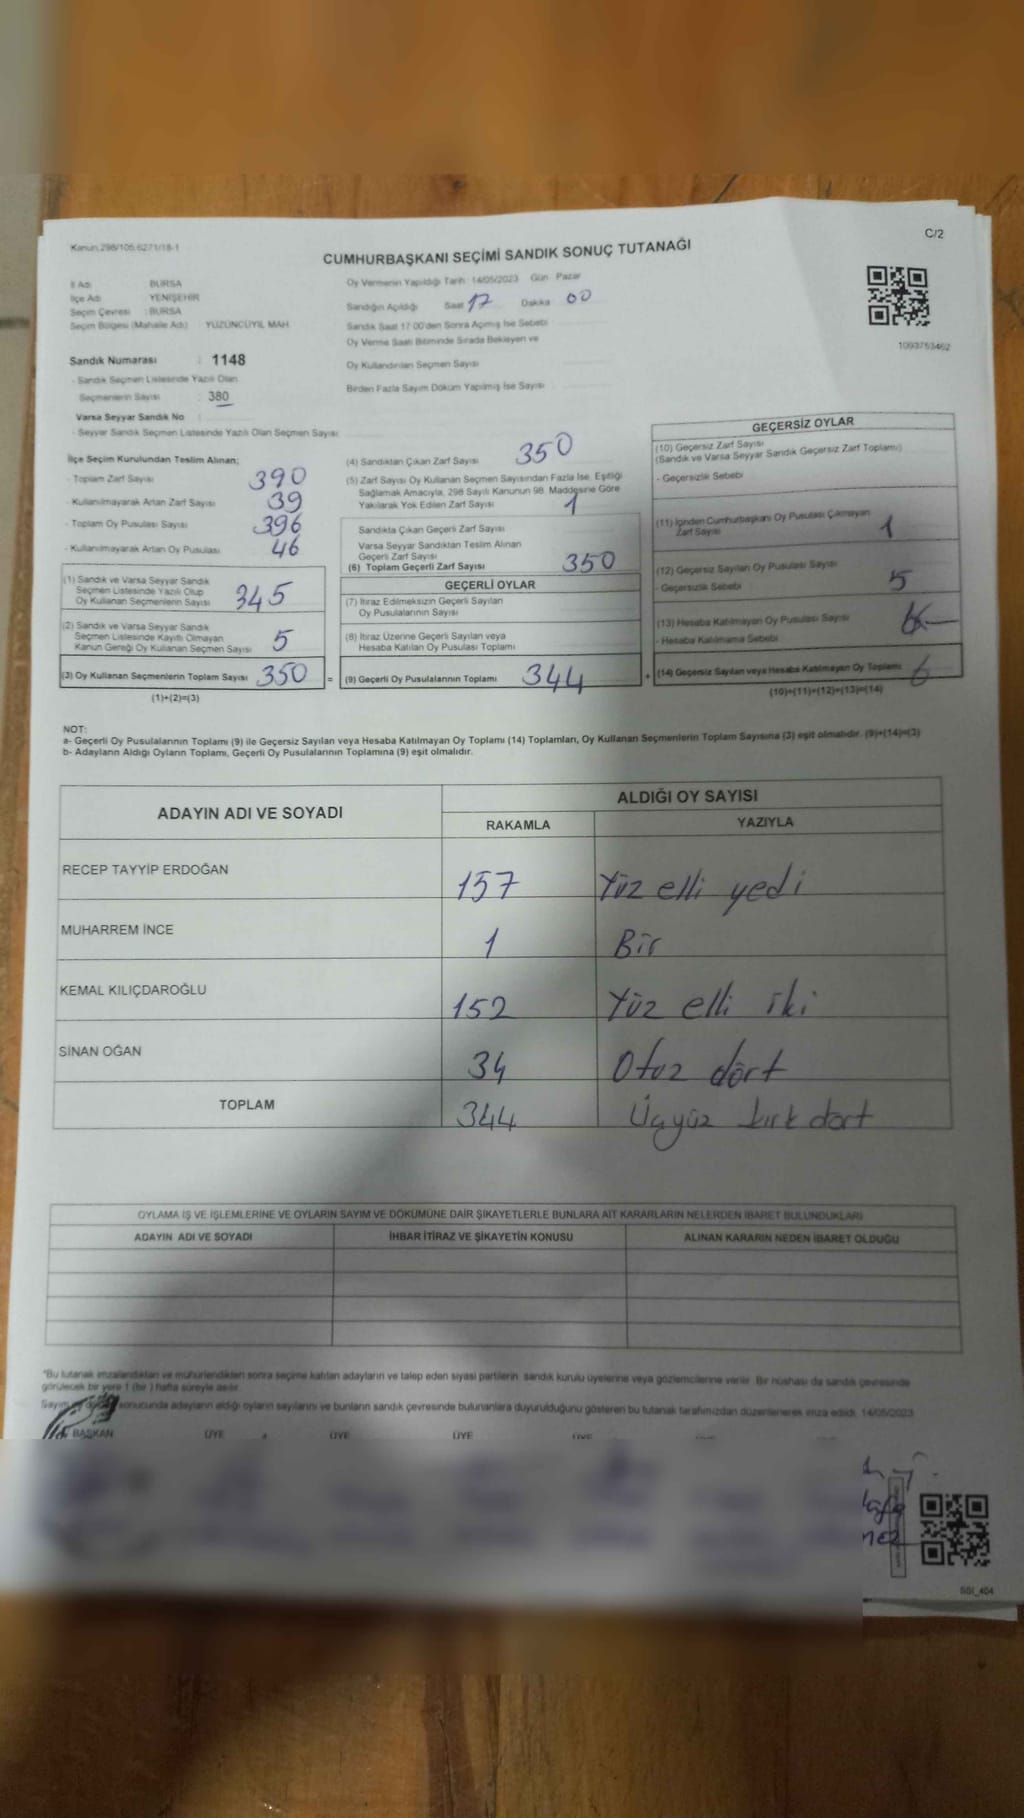 Kanun, 298/105,6271/18-1
C/2
CUMHURBAŞKANI SEÇİMİ SANDIK SONUÇ TUTANAĞI
İl Adı : BURSA
İlçe Adı : YENİŞEHİR
Seçim Çevresi : BURSA
Seçim Bölgesi (Mahalle Adı) : YÜZÜNCÜYIL MAH.
Sandık Numarası : 1148
- Sandık Seçmen Listesinde Yazılı Olan
Seçmenlerin Sayısı : 380
Varsa Seyyar Sandık No
- Seyyar Sandık Seçmen Listesinde Yazılı Olan Seçmen Sayısı
Oy Vermenin Yapıldığı Tarih : 14/05/2023 Gün : Pazar
Sandığın Açıldığı Saat 17 Dakika 00
Sandık Saat 17.00'den Sonra Açılmış İse Sebebi
Oy Verme Saati Bitiminde Sırada Bekleyen ve
Oy Kullandırılan Seçmen Sayısı
Birden Fazla Sayım Döküm Yapılmış İse Sayısı
1093753462
İlçe Seçim Kurulundan Teslim Alınan;
- Toplam Zarf Sayısı 390
- Kullanılmayarak Artan Zarf Sayısı 39
- Toplam Oy Pusulası Sayısı 396
- Kullanılmayarak Artan Oy Pusulası 46
(1) Sandık ve Varsa Seyyar Sandık
Seçmen Listesinde Yazılı Olup
Oy Kullanan Seçmenlerin Sayısı 345
(2) Sandık ve Varsa Seyyar Sandık
Seçmen Listesinde Kayıtlı Olmayan
Kanun Gereği Oy Kullanan Seçmen Sayısı 5
(3) Oy Kullanan Seçmenlerin Toplam Sayısı 350
(1)+(2)=(3)
=
(4) Sandıktan Çıkan Zarf Sayısı 350
(5) Zarf Sayısı Oy Kullanan Seçmen Sayısından Fazla İse, Eşitliği
Sağlamak Amacıyla, 298 Sayılı Kanunun 98. Maddesine Göre
Yakılarak Yok Edilen Zarf Sayısı 1
Sandıkta Çıkan Geçerli Zarf Sayısı
Varsa Seyyar Sandıktan Teslim Alınan
Geçerli Zarf Sayısı
(6) Toplam Geçerli Zarf Sayısı 350
GEÇERLİ OYLAR
(7) İtiraz Edilmeksizin Geçerli Sayılan
Oy Pusulalarının Sayısı
(8) İtiraz Üzerine Geçerli Sayılan veya
Hesaba Katılan Oy Pusulası Toplamı
(9) Geçerli Oy Pusulalarının Toplamı 344
+
GEÇERSİZ OYLAR
(10) Geçersiz Zarf Sayısı
(Sandık ve Varsa Seyyar Sandık Geçersiz Zarf Toplamı)
- Geçersizlik Sebebi
(11) İçinden Cumhurbaşkanı Oy Pusulası Çıkmayan
Zarf Sayısı 1
(12) Geçersiz Sayılan Oy Pusulası Sayısı
- Geçersizlik Sebebi 5
(13) Hesaba Katılmayan Oy Pusulası Sayısı
- Hesaba Katılmama Sebebi
(14) Geçersiz Sayılan veya Hesaba Katılmayan Oy Toplamı 6
(10)+(11)+(12)+(13)=(14)
NOT:
a- Geçerli Oy Pusulalarının Toplamı (9) ile Geçersiz Sayılan veya Hesaba Katılmayan Oy Toplamı (14) Toplamları, Oy Kullanan Seçmenlerin Toplam Sayısına (3) eşit olmalıdır. (9)+(14)=(3)
b- Adayların Aldığı Oyların Toplamı, Geçerli Oy Pusulalarının Toplamına (9) eşit olmalıdır.
ADAYIN ADI VE SOYADI
ALDIĞI OY SAYISI
RAKAMLA YAZIYLA
RECEP TAYYİP ERDOĞAN 157 Yüz elli yedi
MUHARREM İNCE 1 Bir
KEMAL KILIÇDAROĞLU 152 Yüz elli iki
SİNAN OĞAN 34 Otuz dört
TOPLAM 344 Üçyüz kırk dört
OYLAMA İŞ VE İŞLEMLERİNE VE OYLARIN SAYIM VE DÖKÜMÜNE DAİR ŞİKAYETLERLE BUNLARA AİT KARARLARIN NELERDEN İBARET BULUNDUKLARI
ADAYIN ADI VE SOYADI İHBAR İTİRAZ VE ŞİKAYETİN KONUSU ALINAN KARARIN NEDEN İBARET OLDUĞU
*Bu tutanak imzalandıktan ve mühürlendikten sonra seçime katılan adayların ve talep eden siyasi partilerin sandık kurulu üyelerine veya gözlemcilerine verilir. Bir nüshası da sandık çevresinde
görülecek bir yere 1 (bir) hafta süreyle asılır.
Sayım ve döküm sonucunda adayların aldığı oyların sayılarını ve bunların sandık çevresinde bulunanlara duyurulduğunu gösteren bu tutanak tarafımızdan düzenlenerek imza edildi. 14/05/2023
BAŞKAN ÜYE ÜYE ÜYE
SSI_404